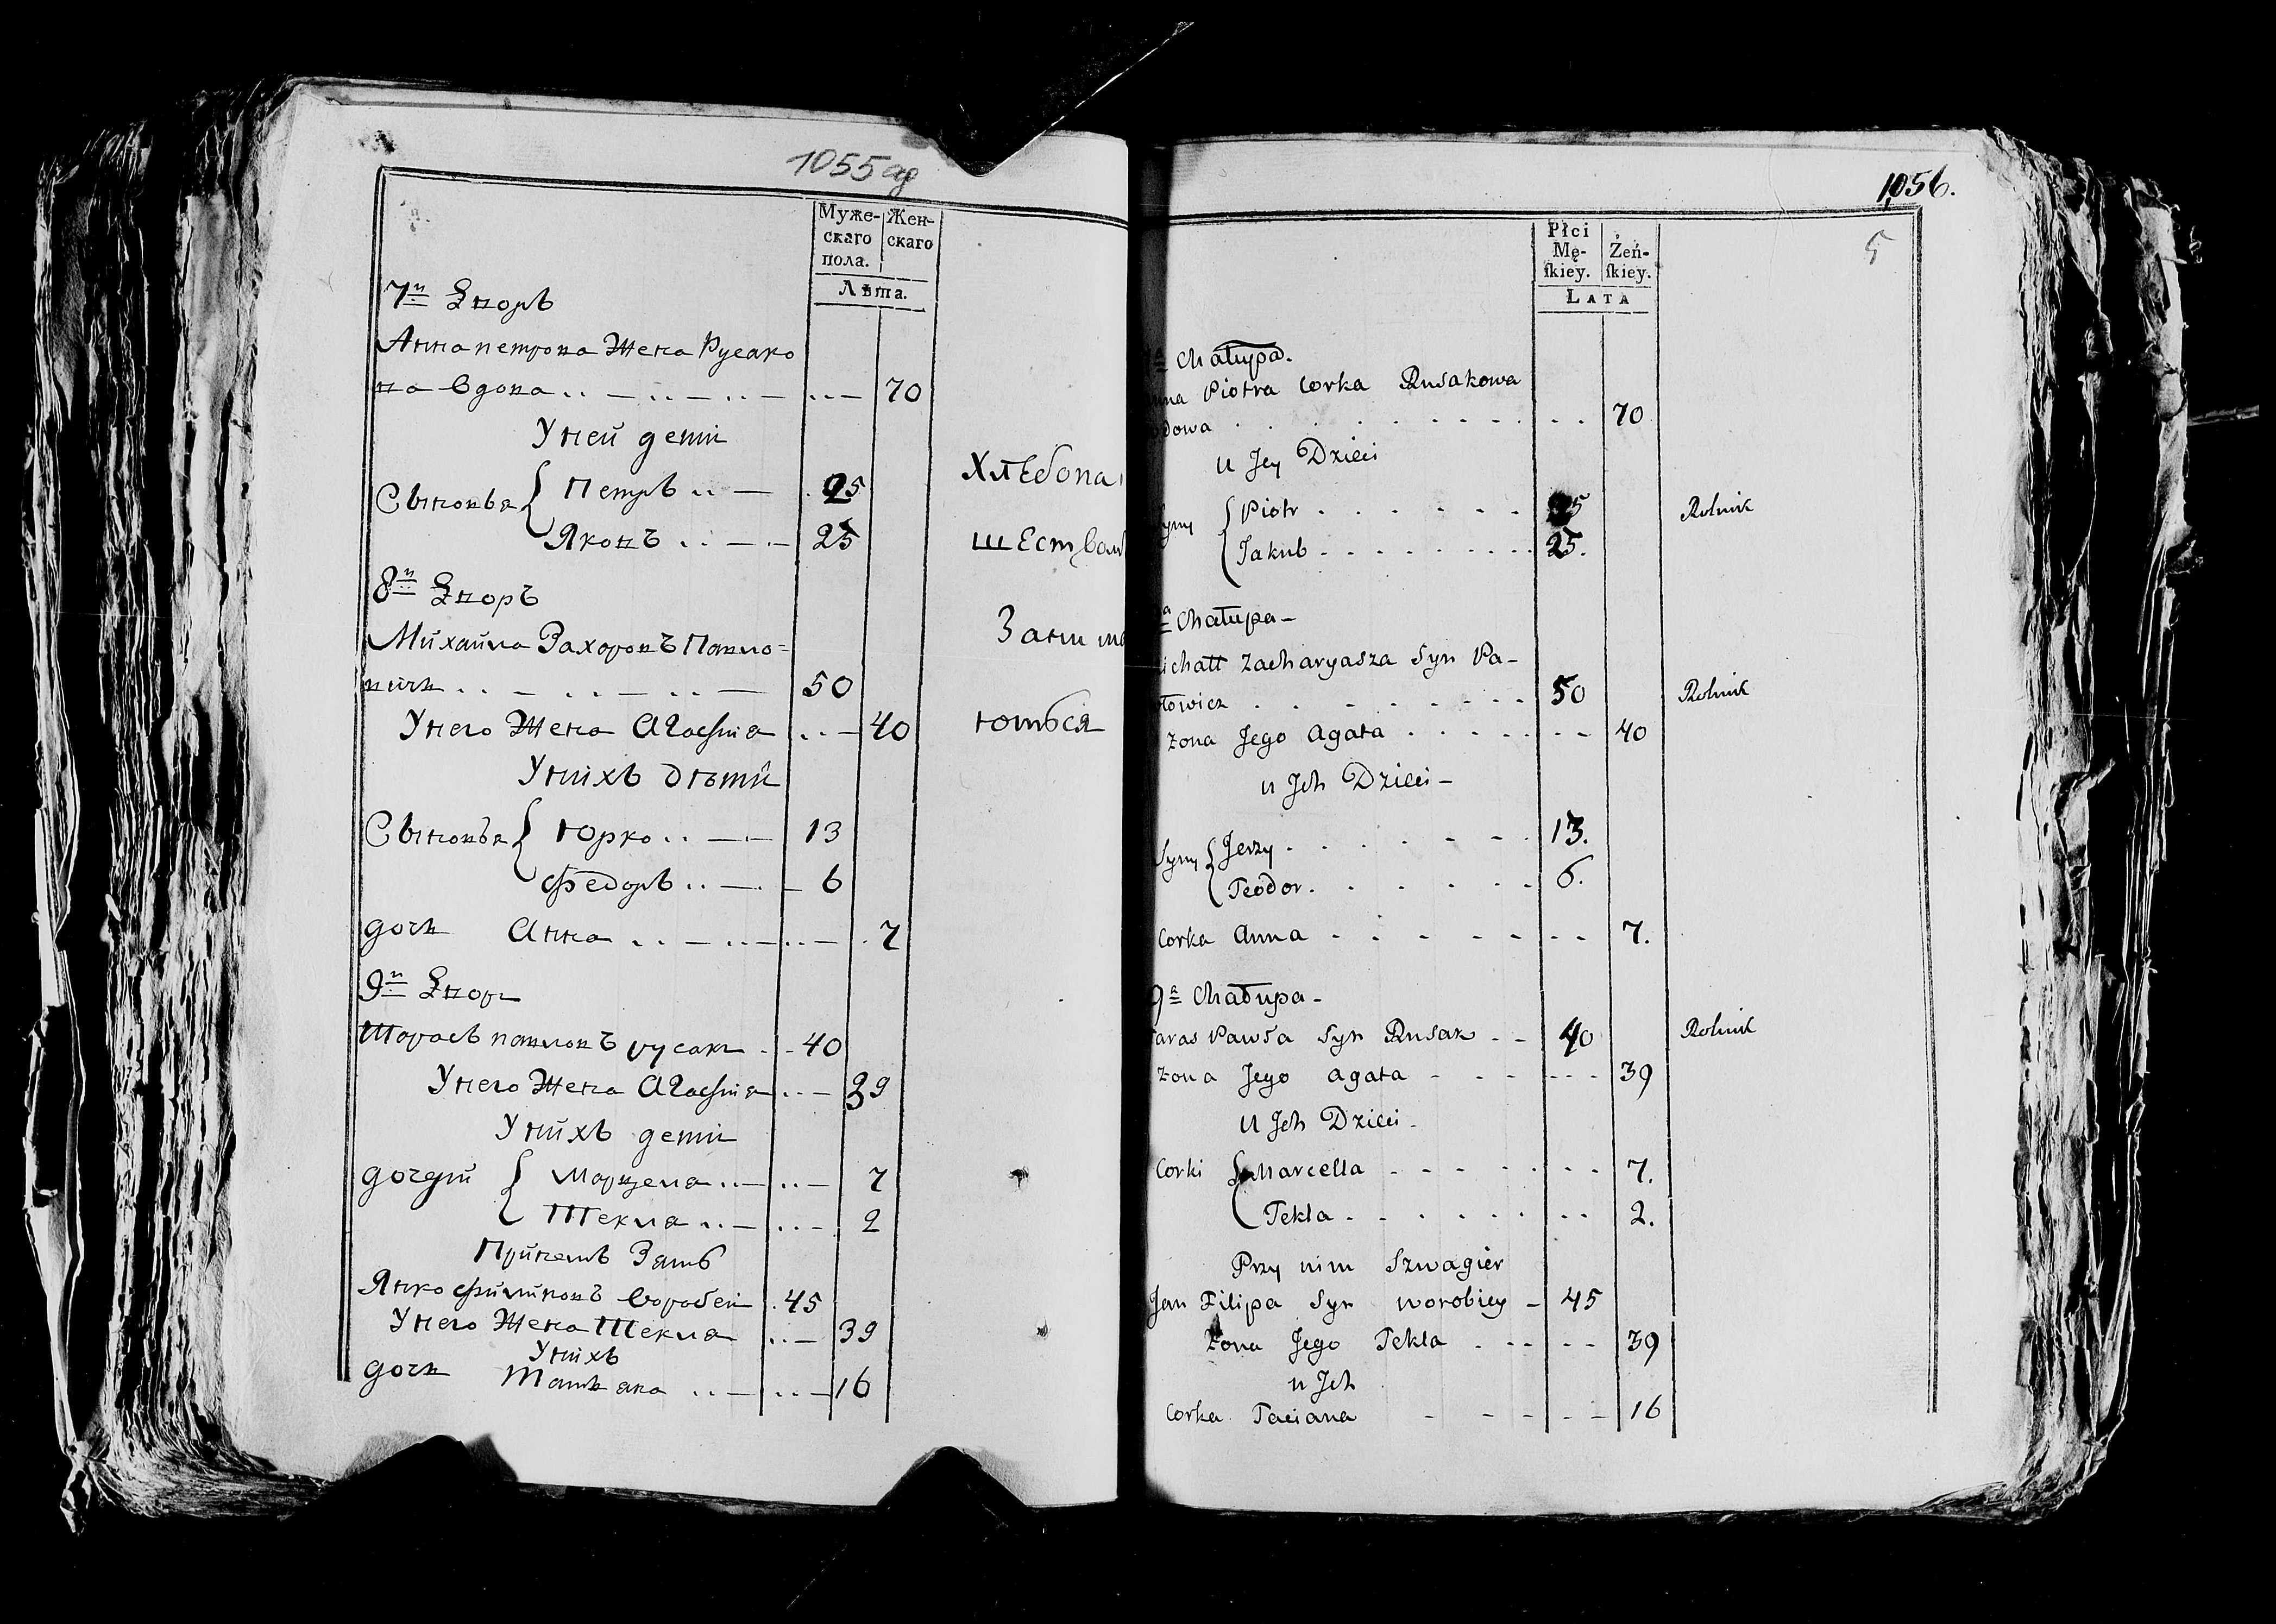 1055
Муже-
скаго
пола.
Жен-
скаго
Лѣта.
7й Дворъ
Анна петрова Жена Русако
ва вдова 70
У ней дети
Сыновья { Петръ 25
Яковъ 25
8й Дворъ
Михайла Захоровъ Павло=
вичъ 50
У него Жена Агафия 40
У нихъ дѣти
Сыновья { Юрко 13
Федоръ 6
дочь Анна 7
9й Дворъ
Тарасъ павловъ русакъ 40
У него Жена Агафия 39
У нихъ дети
дочери { Марцеля 7
Текля 2
При немъ Зять
Янко филиповъ воробей 45
У него Жена Текля 39
У нихъ
дочь 16
Хлѣбопа
шествомъ
Занима
ються
1056.
5
Płci
Mę-
ſkiey.
Żeń-
ſkiey.
LATA
Chałupa.
Piotra Corka Rusakowa
dowa 70
u Jey Dzieci
Syny { Piotr 25 Rolnik
Jakub 25.
Chałupa -
ichałł Zacharyasza Syn Pa-
łowicz 50 Rolnik
żona Jego Agata 40
u Jch Dzieci -
Syny { Jerzy 13.
Teodor. 6.
Corka Anna 7.
9a Chałupa -
aras Pawła Syn Rusak 40 Rolnik
żona Jego Agata 39
u Jch Dzieci -
Corki { Marcella 7.
Tekla 2.
Przy nim Szwagier
Jan Filipa Syn Worobiey 45
żona Jego Tekla 39
u Jch
Corka Taciana 16